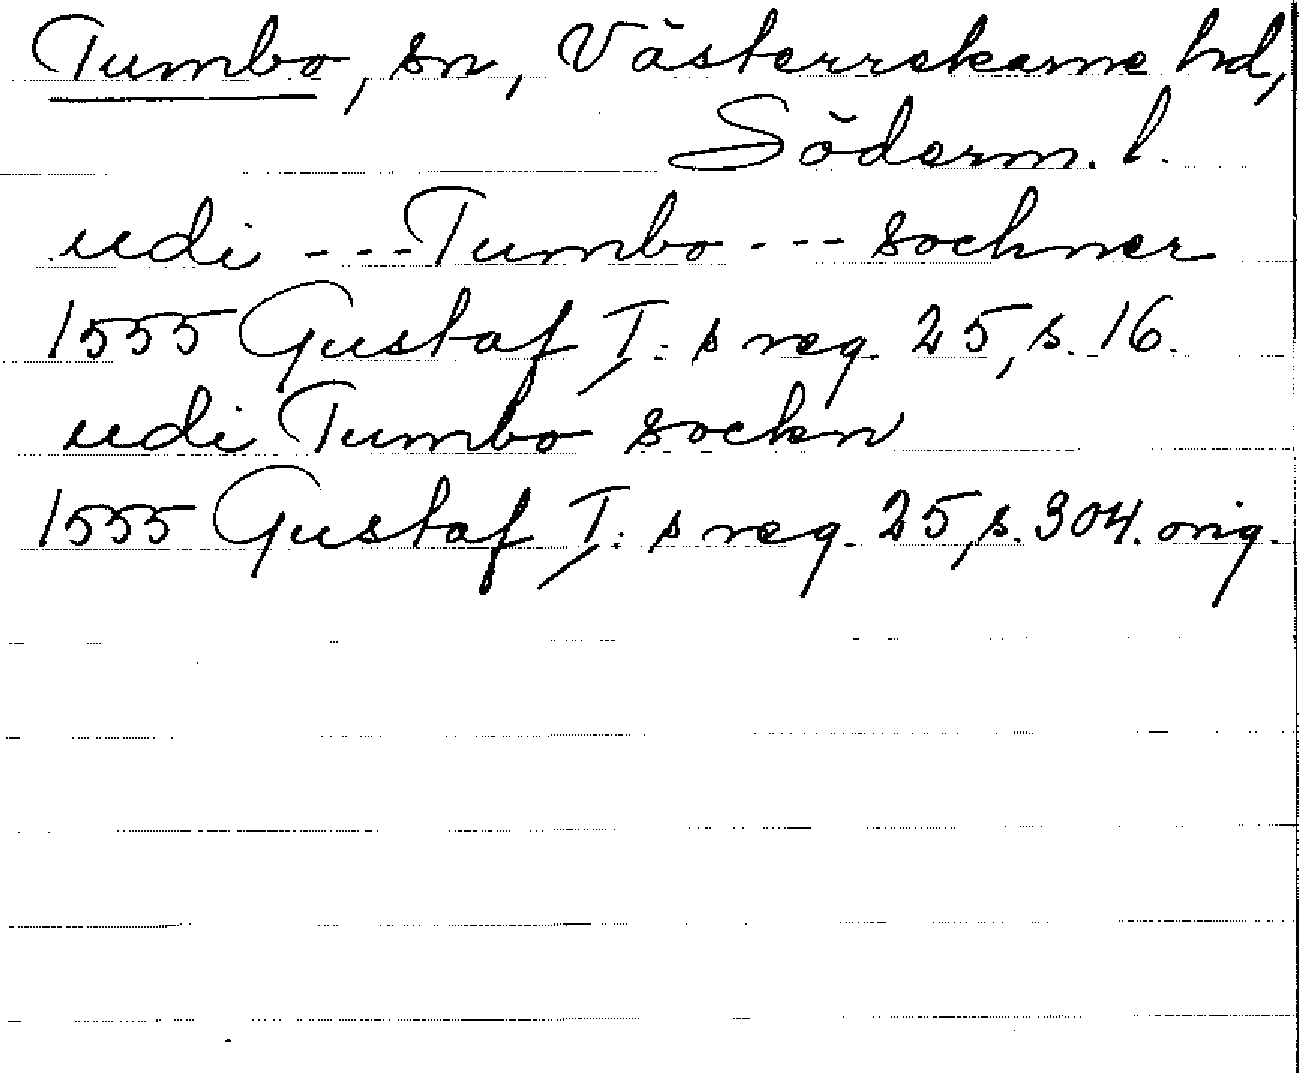 Tumbo, sn, Västerrekarne hd,
Söderm. l.
udi --- Tumbo --- sochner
1555 Gustaf I:s reg. 25, s. 16.
udi Tumbo sockn
1555 Gustaf I:s reg. 25, s. 304. orig.